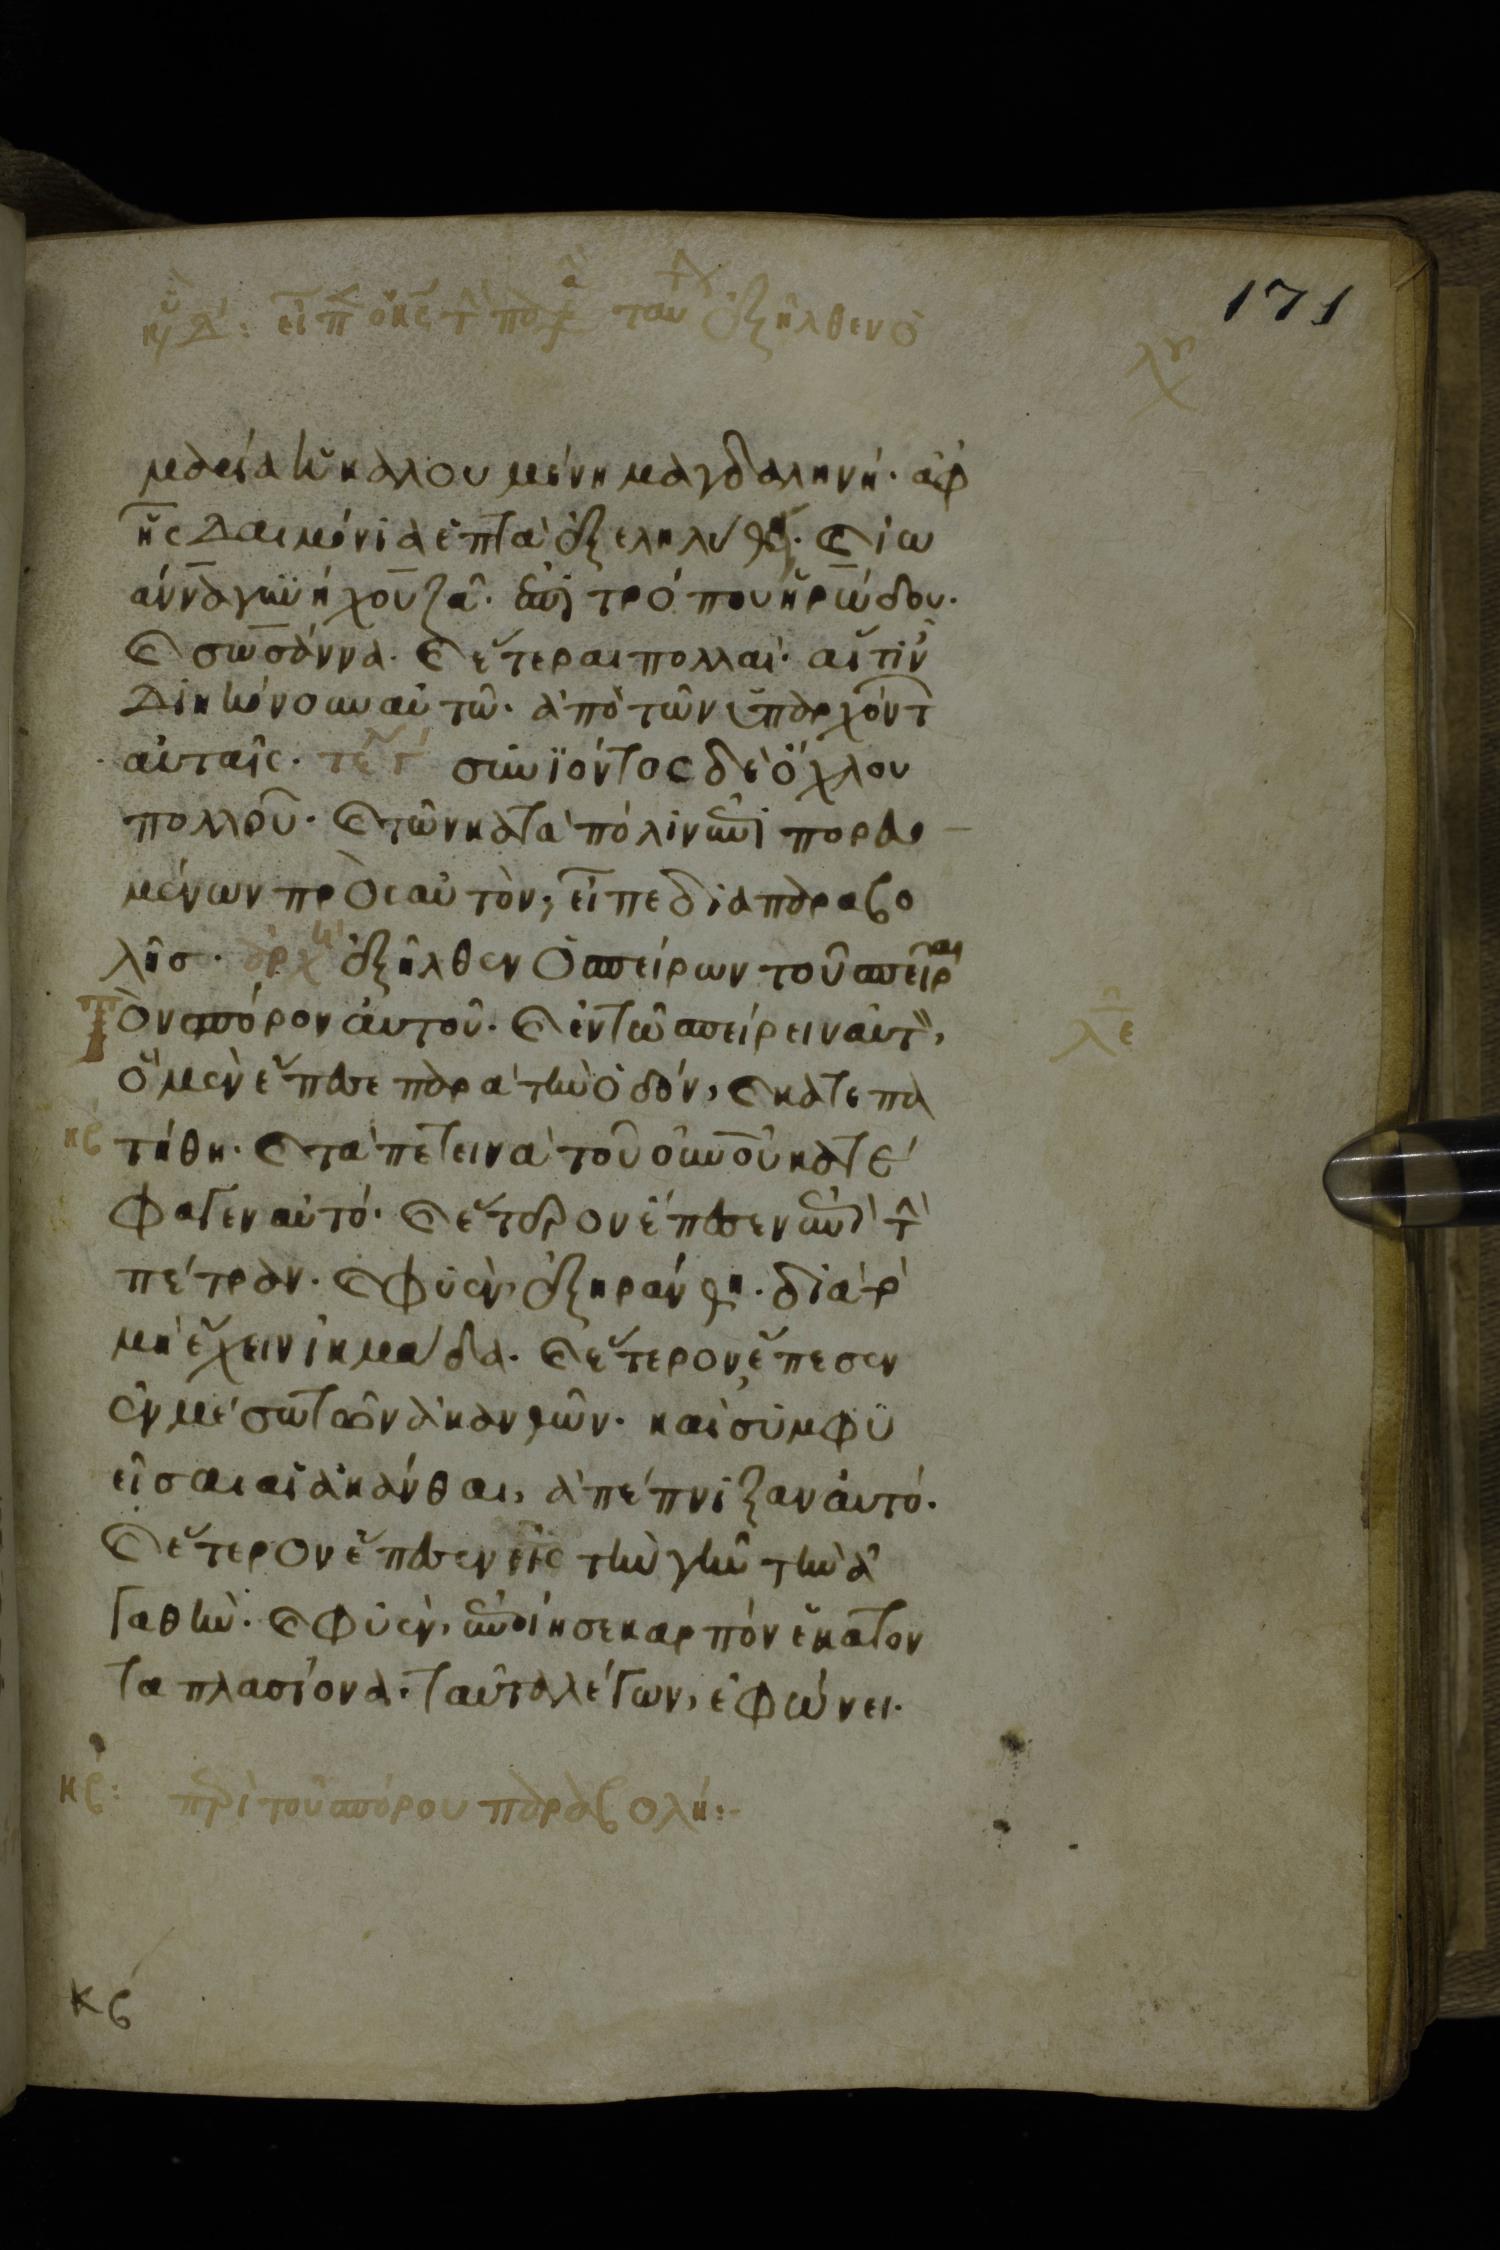 171
μαρία ἡ καλουμένη μαγδαληνή· ἀφ
ἧς δαιμόνια ἑπτὰ ἐξεληλύθει· καὶ ἰω
άννα γυνὴ χουζᾶ· ἐπιτρόπου ἡρώδου·
καὶ σωσάννα· καὶ ἕτεραι πολλαί· αἵτιν
διηκόνουν αὐτῶ· ἀπὸ τῶν ὑπαρχόντ
αὐταῖς· τε συνϊόντος δὲ ὄχλου
πολλοῦ· καὶ τῶν κατὰ πόλιν ἐπιπορευο
μένων πρὸς αὐτὸν, εἶπε διαπαραβο
λῆσ· ἀρχ ἐξῆλθεν ὁ σπείρων τοῦ σπεῖραι
Τὸν σπόρον αὐτοῦ· καὶ ἐν τῶ σπείρειν αὐτὸν,
ὃ μὲν ἔπεσε παρὰ τὴν ὁδόν, καὶ κατεπα
κβ τήθη· καὶ τὰ πετεινὰ τοῦ οὐνοῦ κατέ
φαγεν αὐτό· καὶ ἕτερον ἔπεσεν ἐπὶ τὴν
πέτραν· καὶ φυὲν, ἐξηράνθη· διὰ τὸ
μὴ ἔχειν ἰκμάδα· καὶ ἕτερον ἔπεσεν
ἐν μέσω τῶν ἀκανθῶν· καὶ συμφυ
εῖσαι αἱ ἄκανθαι, ἀπέπνιξαν αὐτό·
καὶ ἕτερον ἔπεσεν εἰς τὴν γῆν τὴν ἀ
γαθήν· καὶ φυὲν, ἐποίησε καρπὸν ἑκατον
ταπλασίονα· ταῦτα λέγων, ἐφώνει·
κβ: περὶ τοῦ σπόρου παραβολή:
κβ